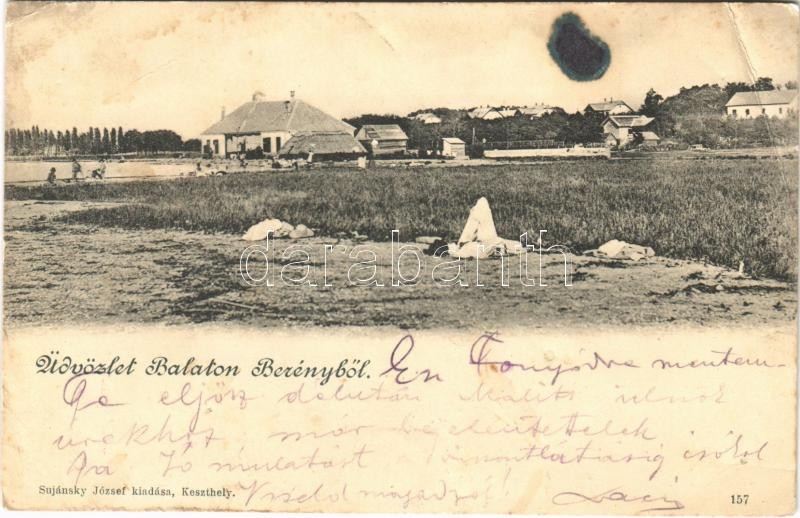 darabanth
Üdvözlet Balaton Berényből.
Én Fonyódra mentem-
Ha eljösz délután
már bejelentettelek
Jó mulatást a viszontlátásig csókol
Viseld magadról!
Laci
Sujánsky József kiadása, Keszthely.
157